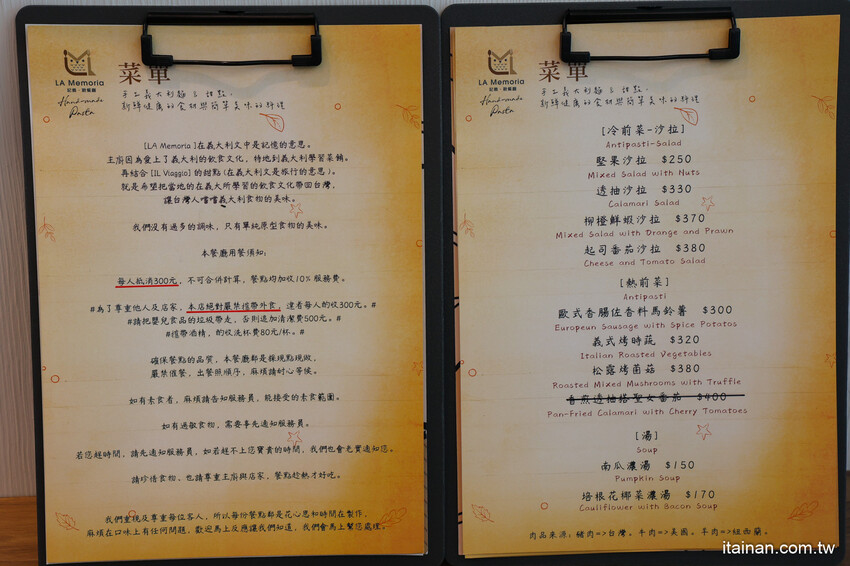 LA Memoria
記憶·附餐廳
Hand-made
Pasta
菜單
手工義大利麵 & 甜點,
新鮮健康的食材與簡單美味的料理
[LA Memoria]在義大利文中是記憶的意思。
王廚因為愛上了義大利的飲食文化,特地到義大利學習菜餚。
再結合[IL Viaggio]的甜點(在義大利文是旅行的意思)。
就是希望把當地的在義大所學習的飲食文化帶回台灣,
讓台灣人嚐嚐義大利食物的美味。
我們沒有過多的調味,只有單純原型食物的美味。
本餐廳用餐須知:
每人低消300元,不可合併計算,餐點均加收10%服務費。
#為了尊重他人及店家,本店絕對嚴禁攜帶外食,違者每人酌收300元。#
#請把嬰兒食品的垃圾帶走,否則追加清潔費500元。#
#攜帶酒精,酌收洗杯費80元/杯。#
確保餐點的品質,本餐廳都是採現點現做,
嚴禁催餐,出餐照順序,麻煩請耐心等候。
如有素食者,麻煩請告知服務員,能接受的素食範圍。
如有過敏食物,需要事先通知服務員。
若您趕時間,請先通知服務員,如若趕不上您寶貴的時間,我們也會老實通知您。
請珍惜食物、也請尊重王廚與店家,餐點趁熱才好吃。
我們重視及尊重每位客人,所以每份餐點都是花心思和時間在製作,
麻煩在口味上有任何問題,歡迎馬上反應讓我們知道,我們會馬上幫您處理。
LA Memoria
Hand-made
Pasta
菜單
手工義大利麵 & 甜點,
新鮮健康的食材與簡單美味的料理
[冷前菜-沙拉]
Antipasti-Salad
堅果沙拉 $250
Mixed Salad with Nuts
透抽沙拉 $330
Calamari Salad
柳橙鮮蝦沙拉 $370
Mixed Salad with Orange and Prawn
起司番茄沙拉 $380
Cheese and Tomato Salad
[熱前菜]
Antipasti
歐式香腸佐香料馬鈴薯 $300
Europeun Sausage with Spice Potatos
義式烤時蔬 $320
Italian Roasted Vegetables
松露烤菌菇 $380
Roasted Mixed Mushrooms with Truffle
香煎透抽搭聖女番茄 $400
Pan-Fried Calamari with Cherry Tomatoes
[湯]
Soup
南瓜濃湯 $150
Pumpkin Soup
培根花椰菜濃湯 $170
Cauliflower with Bacon Soup
肉品來源:豬肉=>台灣。牛肉=>美國。羊肉=>紐西蘭。
itainan.com.tw